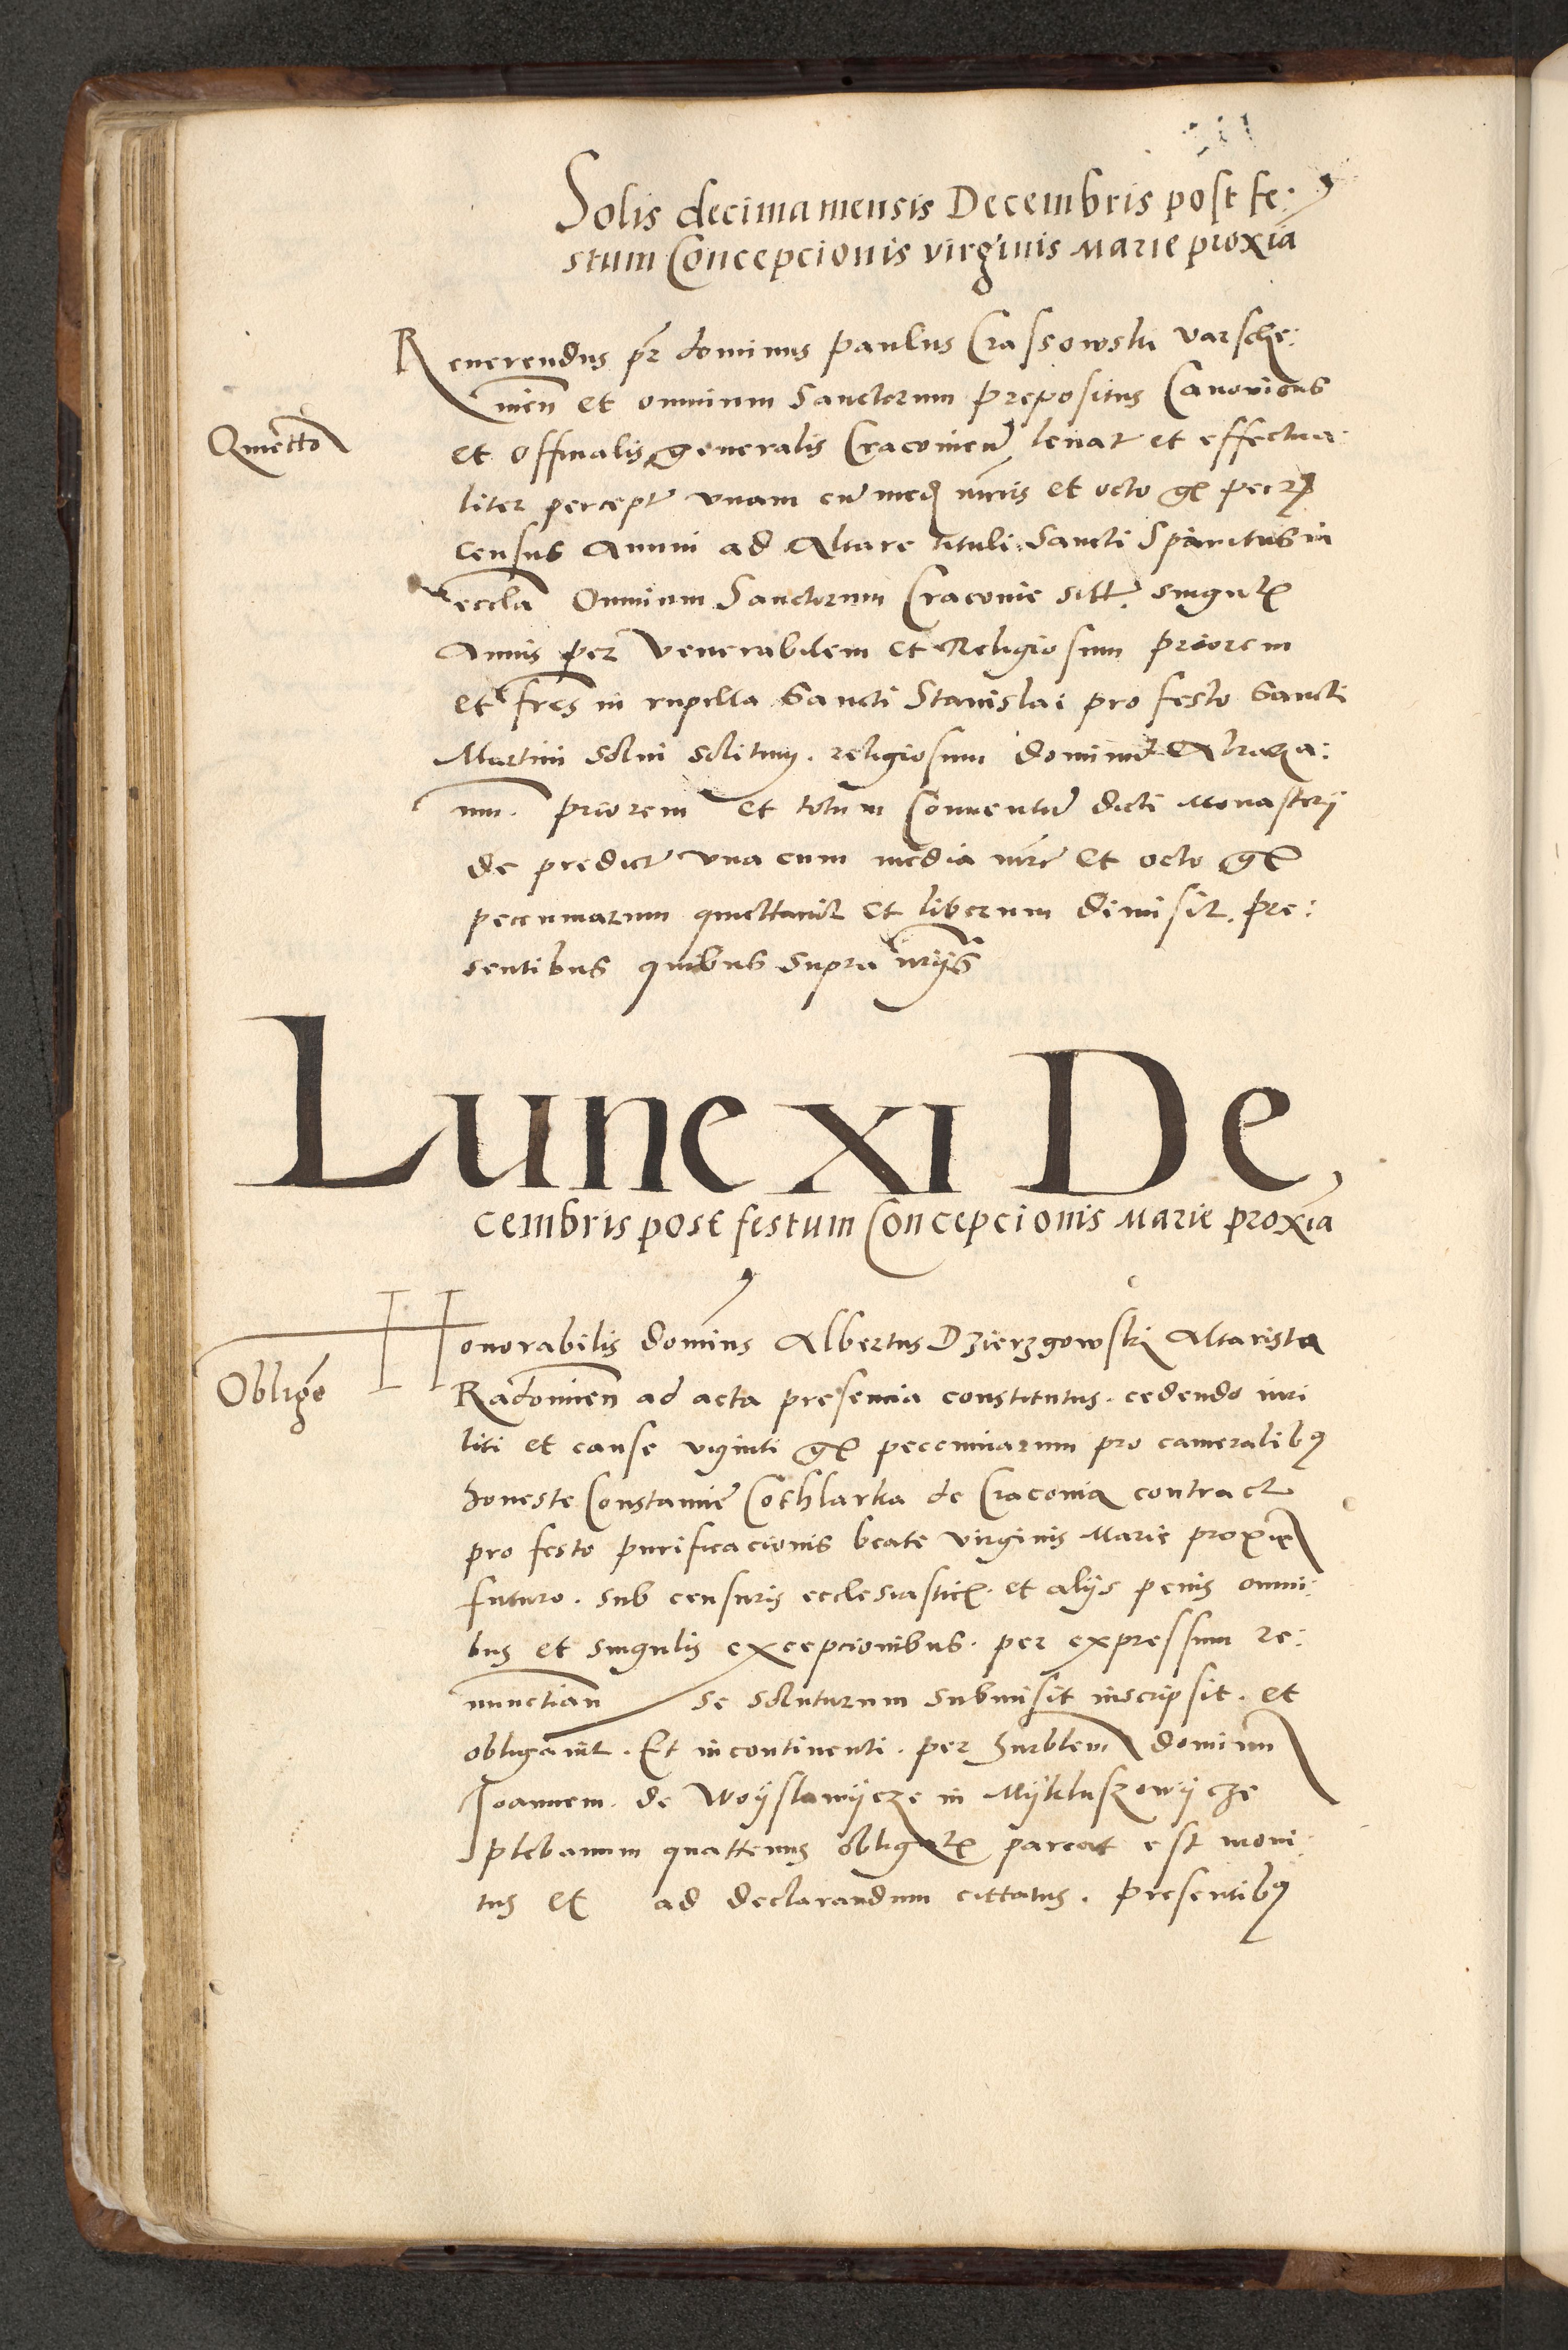 Solis decima mensis Decembris post fe:
stum Concepcionis virginis Marie proxia
Reuerendus pr dominus Paulus Crassowski Varsche:
uien et omnium Sanctorum prepositus Canonicus
Quietto
et Officialis generalis Cracouien leuat et effectua:
liter percept vnam cum med mrcis et octo gr pec
census Annui ad Altare tituli Sancti Spiritus in
eccla Omnium Sanctorum Cracouie sitt singul
Annis per Venerabilem et Religiosum priorem
et fres in rupella Sancti Stanislai pro festo Sancti
Martini solui solitum. religiosum dominum
num. priorem et totum Conuentum dicti Monasterij
de predict vna cum media mrc et octo gr
pecuniarum quiettauit et liberum dimisit. pre:
sentibus quibus supra
Lune XI De,
cembris post festum Concepcionis Marie proxia
Honorabilis dominus Albertus Dzierzgowski Altarista
Obligo
Radomien ad acta presencia constitutus. cedendo iuri
liti et cause viginti gr pecuniarum pro cameralibus
honeste Constancie Cothlarka de Cracouia contract
pro festo purificacionis beate virginis Marie proxie
futuro. sub censuris ecclesiastic. et alijs penis omni:
bus et singulis excepcionibus. per expressum re:
nunctian se soluturum submisit inscripsit. et
obligauit. Et incontinenti. per hurblem dominum
Joannem. de Woyslawycze in Mykluszowycze
plebanum quattenus obligat pareat est moni:
tus et ad declarandum cittatus. presentibus